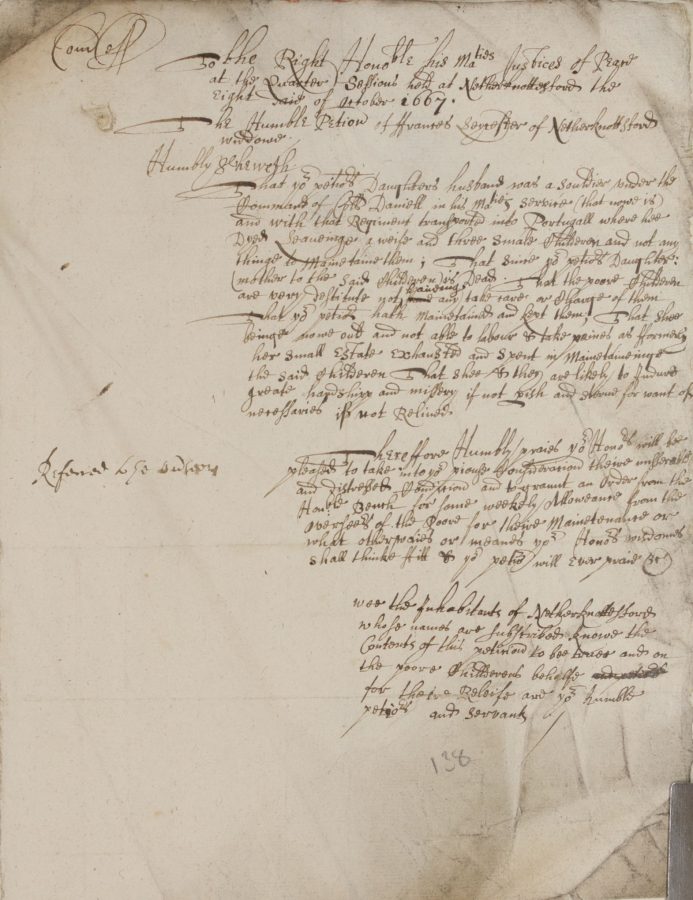 To the Right Honoble his Maties Justices of Peace
at the Quarter Sessions held at Netherknottesford the
Eight Daie of October 1667.
The Humble Petion of ffrances of Netherknottsford
widdowe
Humbly Sheweth
That yor petiors Daughters husband was a souldier under the
Command of Daniell in his Maties Service (that nowe is)
and with that Regiment transported into Portugall where hee
Dyed Leaveinge a weife and three smale Children and not any
thinge to Maintaine them; That since yor petiors Daughter:
(mother to the said Children) is Dead. That the poore Children
are very destitute not haveing any take care or Charge of them
That yor petior hath Maintained and kept them; That shee
beinge nowe ould and not able to labour & take paines as fformerly
her small Estate Exhausted and Spent in Maintaineinge
the said Children That shee & they are likely to Indure
greate hardshipp and missery if not pish and sterve for want of
necessaries if not Relived
Thereffore Humbly praies yor Honors will be
pleased to take into yor pious Consideration theire misserable
and distressed Condition and to graunt an Order from the
Honoble Bench for some weekely Alloweance from the
overseers of the Poore for theire Maintenance or
what other waies or meanes yor Honors wisdomes
shall thinke ffitt & yor petior will Ever praie &c
Referred to the
wee the Inhabitants of Netherknottesford
whose names are subscribed knowe the
Contents of this peticion to bee true and on
the poore Childrens behalfe
for theire Releife are yor humble
petiors and Servants
138